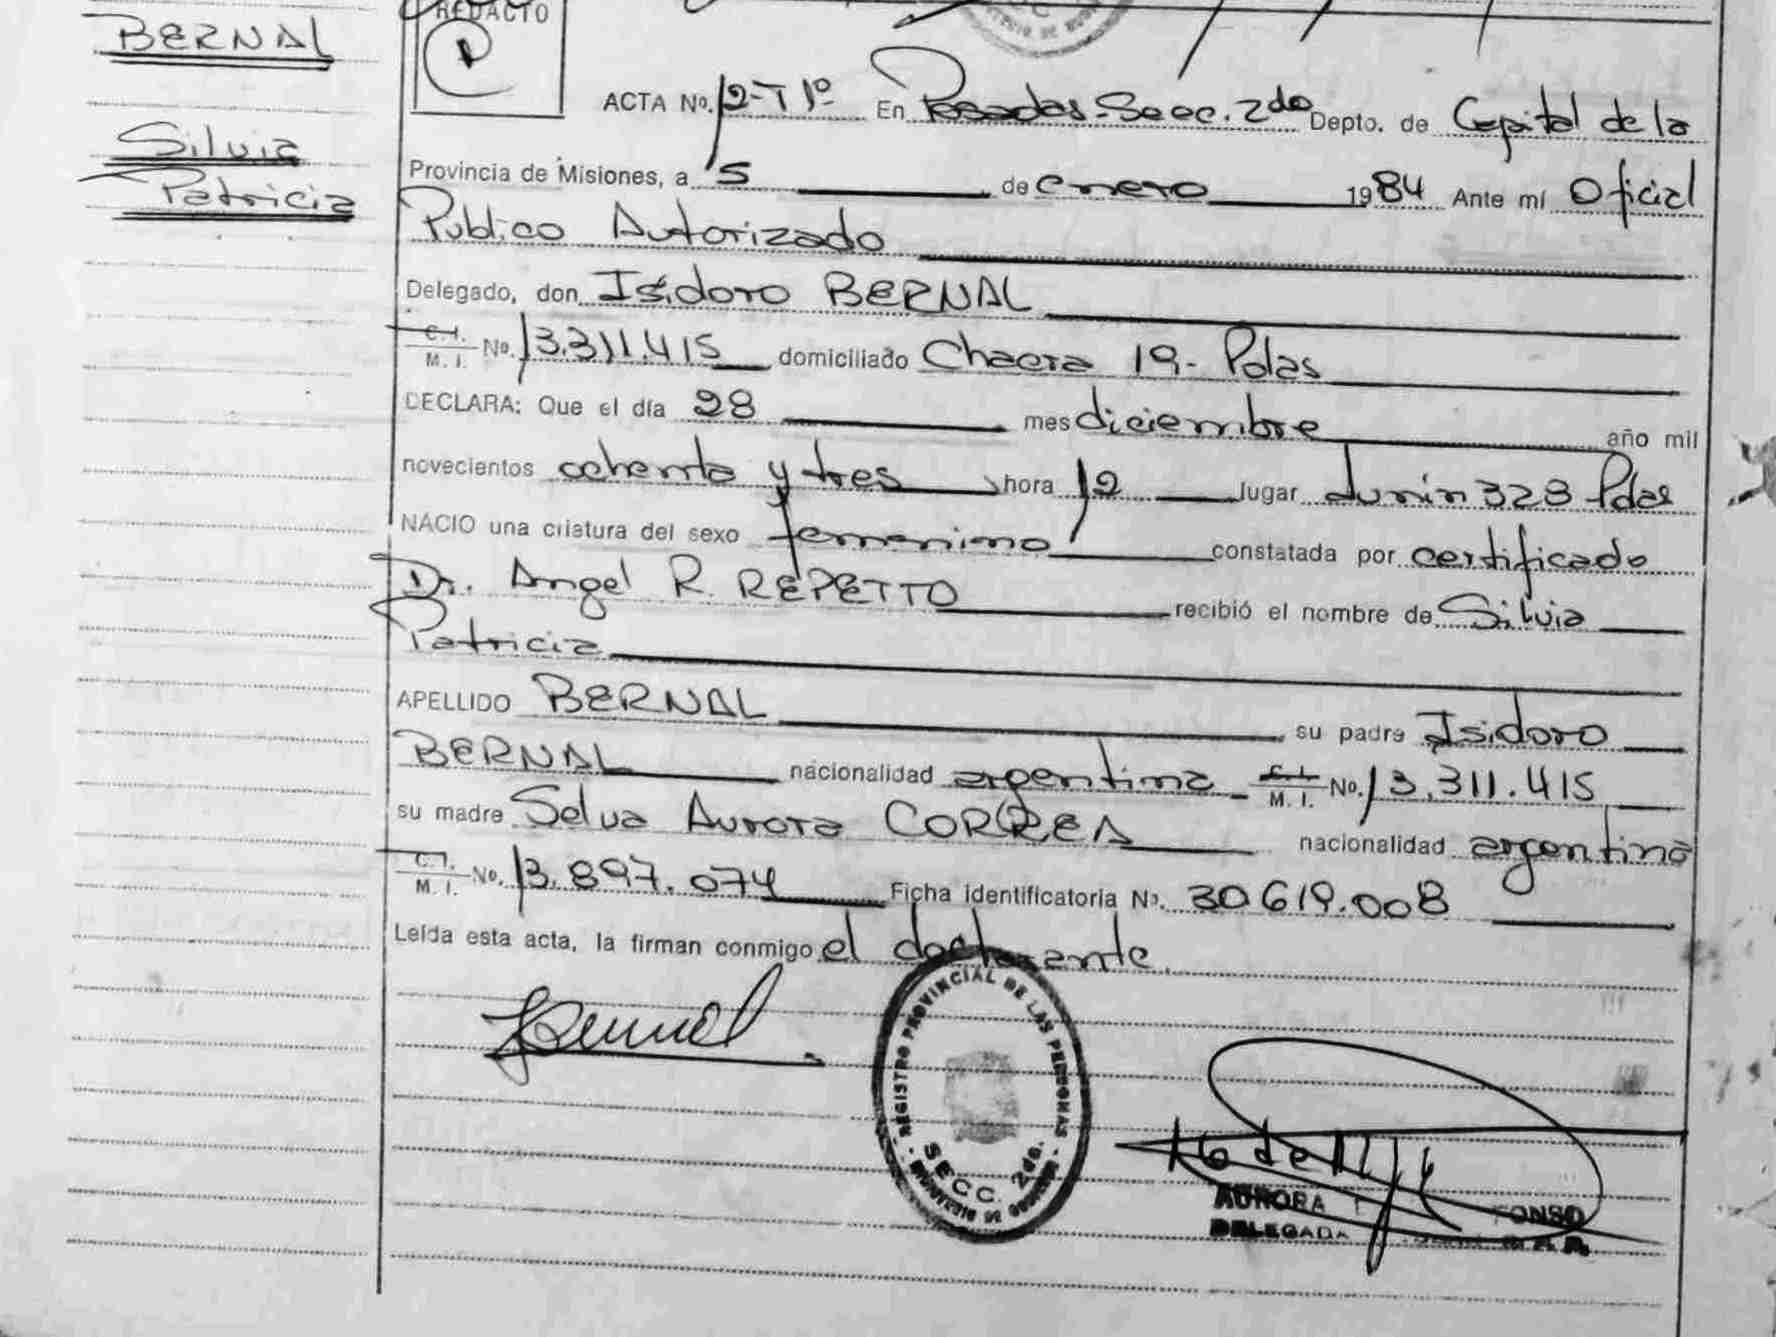 BERNAL
Silvia
Patricia
REDACTO
ACTA Nº. 12-T 1º En Posadas-Secc. 2do Depto. de Capital de la
Provincia de Misiones, a 5 de enero 1984 Ante mí Oficial
Publico Autorizado
Delegado, don Isidoro BERNAL
C.I. M. I. Nº. 13.311.415 domiciliado Chacra 19- Pdas
DECLARA: Que el día 28 mes diciembre año mil
novecientos ochenta y tres hora 12 lugar Junín 328 Pdas
NACIO una criatura del sexo femenino constatada por certificado
Dr. Angel R. REPETTO recibió el nombre de Silvia
Patricia
APELLIDO BERNAL su padre Isidoro
BERNAL nacionalidad argentina C.I. M. I. Nº. 13.311.415
su madre Selva Aurora CORREA nacionalidad argentina
C.I. M. I. Nº. 13.897.074 Ficha identificatoria Nº. 30619.008
Leída esta acta, la firman conmigo el declarante.
REGISTRO PROVINCIAL DE LAS PERSONAS
SECC. 2da.
AURORA
DELEGADA